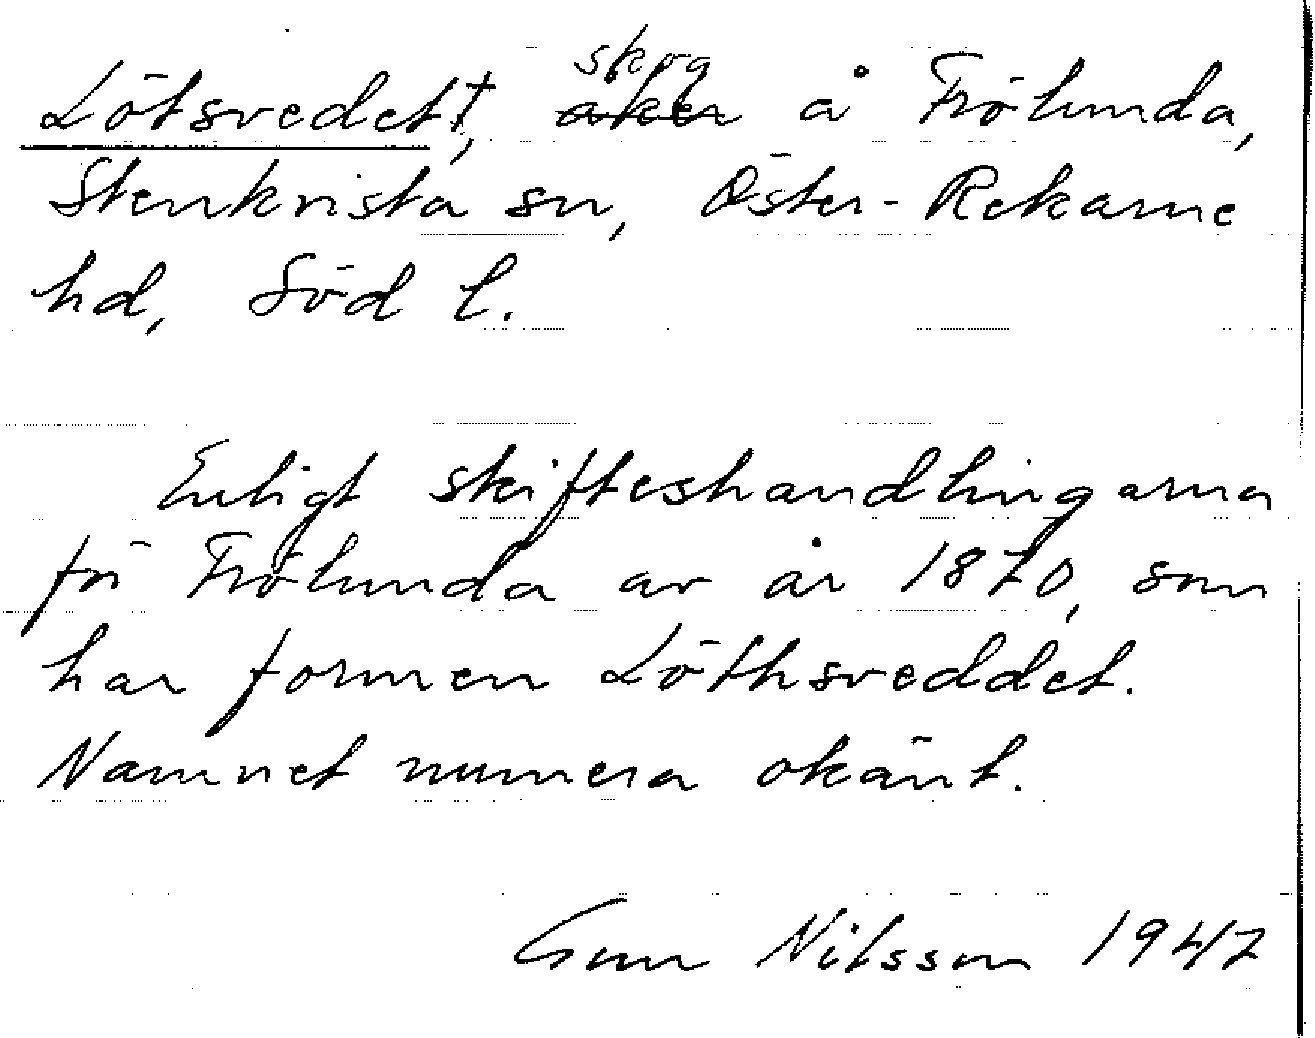 Lötsvedet†, skog å Frölunda,
Stenkvista sn, Öster-Rekarne
hd, Söd l.
Enligt skifteshandlingarna
för Frölunda av år 1870, som
har formen Löthsveddet.
Namnet numera okänt.
Gun Nilsson 1947